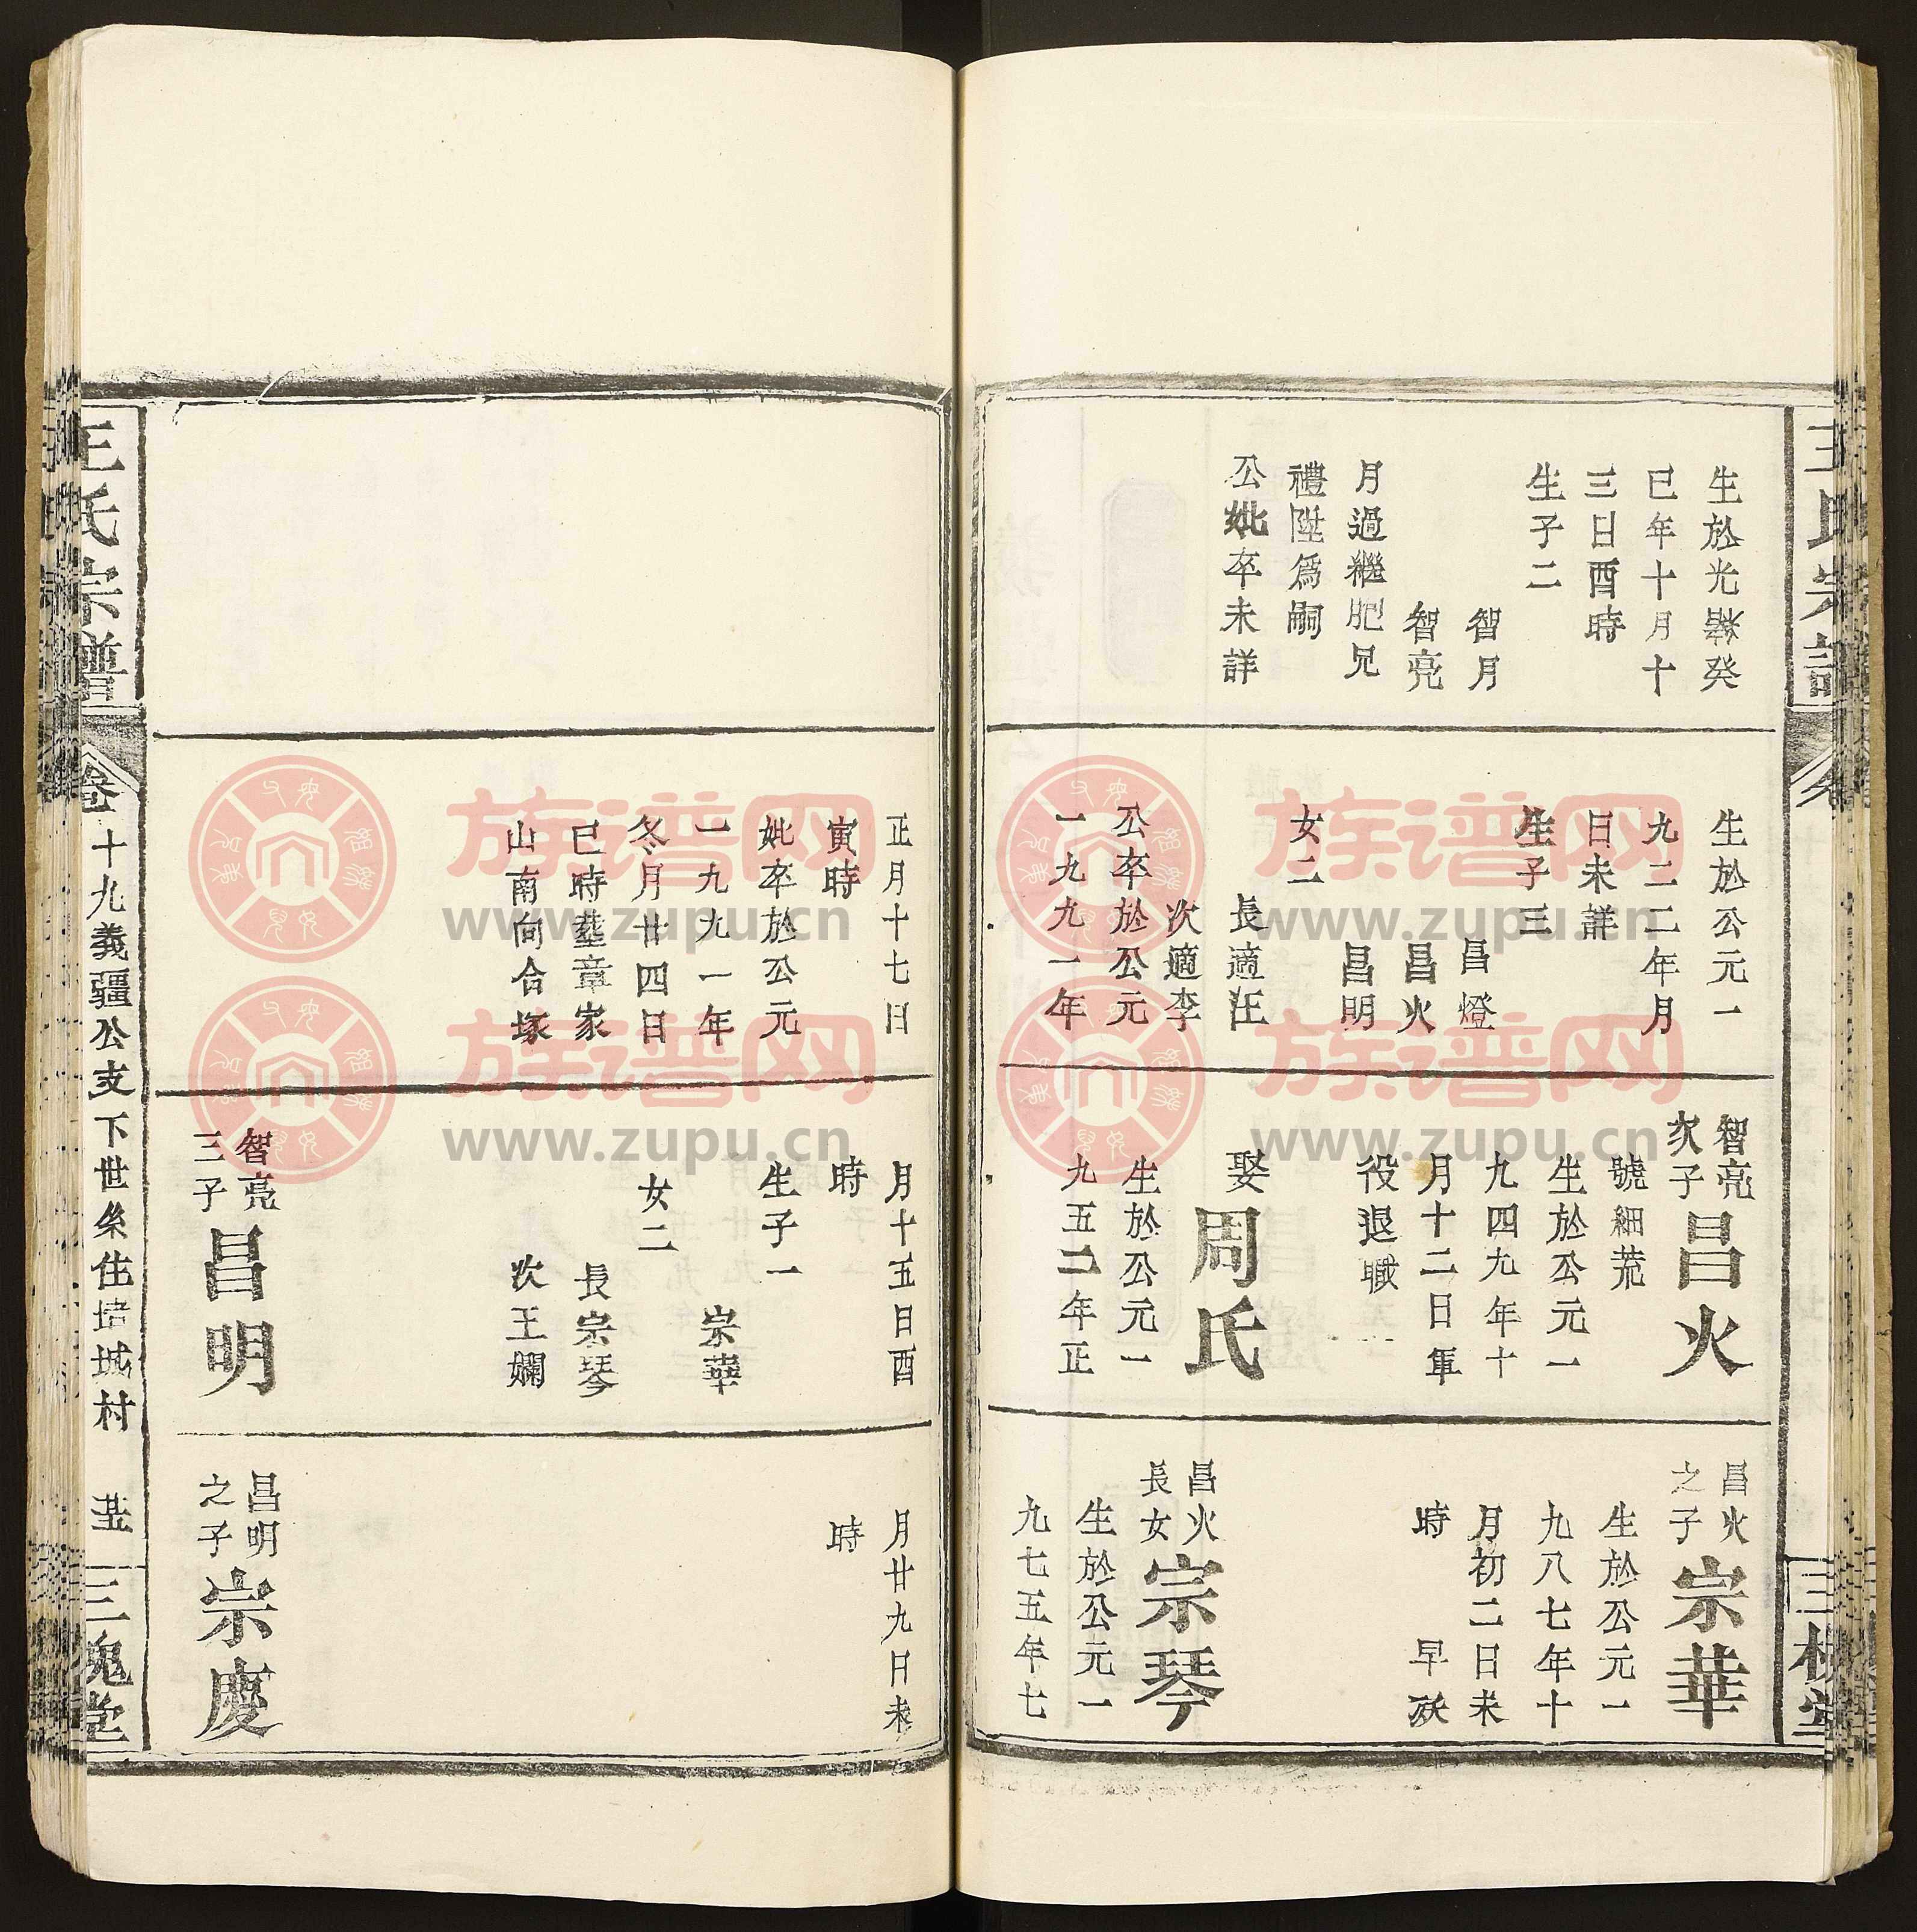 王氏宗譜
三槐堂
生於光緒癸
巳年十月十
三日酉時
生子二
智月
智亮
月過繼肥兄
禮陞爲嗣
公妣卒未詳
生於公元一
九二二年月
日未詳
生子三
昌燈
昌火
昌明
女二
長適汪
次適李
公卒於公元
一九九一年
智亮
次子
昌火
號細荒
生於公元一
九四九年十
月十二日軍
役退職
娶
周氏
生於公元一
九五二年正
昌火
之子
宗華
生於公元一
九八七年十
月初二日未
時 早殀
昌火
長女
宗琴
生於公元一
九七五年七
正月十七日
寅時
妣卒於公元
一九九一年
冬月廿四日
巳時塟章家
山南向合塚
月十五日酉
時
生子一
宗華
女二
長宗琴
次王嫻
智亮
三子
昌明
月廿九日未
時
昌明
之子
宗慶
王氏宗譜
卷十九義疆公支下世系住培城村
三槐堂
族谱网
www.zupu.cn
族谱网
www.zupu.cn
族谱网
www.zupu.cn
族谱网
www.zupu.cn